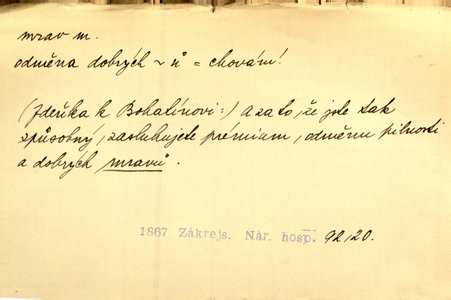 mrav m.
odměna dobrých ~ ů = chování!
(Zdeňka k Bohatínovi:) A za to, že jste tak
způsobný, zasluhujete prémiam, odměnu pilnosti
a dobrých mravů.
1867 Zákrejs, Nár. hosp. 92,20.